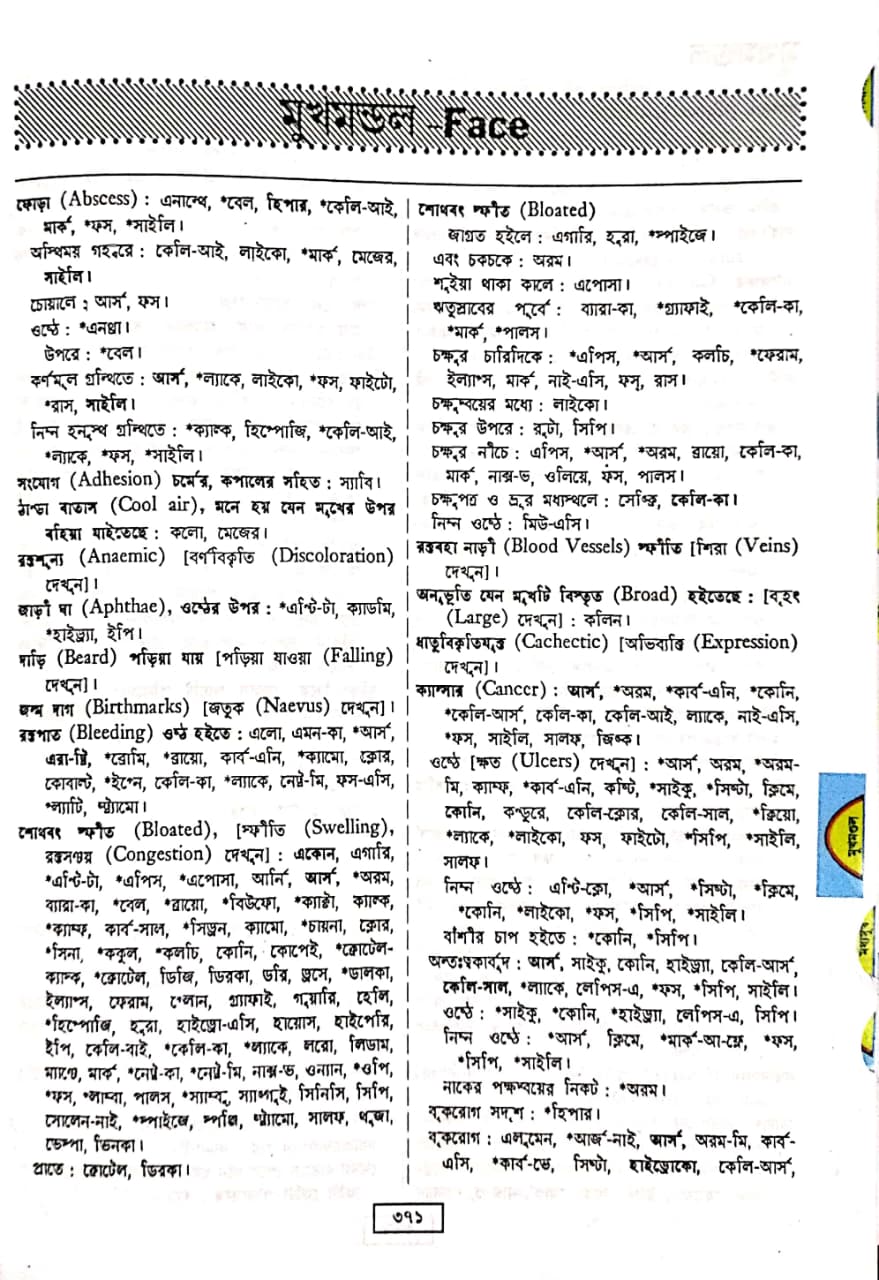 মুখমন্ডল -Face
ফোড়া (Abscess) : এনান্থে, *বেল, হিপার, *কেলি-আই,
মার্ক, *ফস, *সাইলি।
অস্থিময় গহ্বরে : কেলি-আই, লাইকো, *মার্ক, মেজের,
সাইলি।
চোয়ালে ; আর্স, ফস।
ওষ্ঠে : *এনথ্রা।
উপরে : *বেল।
কর্ণমূল গ্রন্থিতে : আর্স, *ল্যাকে, লাইকো, *ফস, ফাইটো,
*রাস, সাইলি।
নিম্ন হনুস্থ গ্রন্থিতে : *ক্যাল্ক, হিম্পোজি, *কেলি-আই,
*ল্যাকে, *ফস, *সাইলি।
সংযোগ (Adhesion) চর্মের, কপালের সহিত : স্যাবি।
ঠান্ডা বাতাস (Cool air), মনে হয় যেন মুখের উপর
বহিয়া যাইতেছে : কলো, মেজের।
রক্তশূন্য (Anaemic) [বর্ণবিকৃতি (Discoloration)
দেখুন]।
জাড়ী ঘা (Aphthae), ওষ্ঠের উপর : *এন্টি-টা, ক্যাডমি,
*হাইড্র্যা, ইপি।
দাড়ি (Beard) পড়িয়া যায় [পড়িয়া যাওয়া (Falling)
দেখুন]।
জন্ম দাগ (Birthmarks) [জতুক (Naevus) দেখুন]।
রক্তপাত (Bleeding) ওষ্ঠ হইতে : এলো, এমন-কা, *আর্স,
এরা-ট্রি, *ব্রোমি, *ব্রায়ো, কার্ব-এনি, *ক্যামো, ক্লোর,
কোবাল্ট, *ইগ্নে, কেলি-কা, *ল্যাকে, নেট্র-মি, ফস-এসি,
*প্ল্যাটি, স্ট্র্যামো।
শোথবৎ স্ফীত (Bloated), [স্ফীতি (Swelling),
রক্তসঞ্চয় (Congestion) দেখুন] : একোন, এগারি,
*এন্টি-টা, *এপিস, *এপোসা, আর্নি, আর্স, *অরম,
ব্যারা-কা, *বেল, *ব্রায়ো, *বিউফো, *ক্যাক্টা, ক্যাল্ক,
*ক্যাম্ফ, কার্ব-সাল, *সিড্রন, ক্যামো, *চায়না, ক্লোর,
*সিনা, *ককুল, *কলচি, কোনি, কোপেই, *ক্রোটেল-
ক্যাস্ক, *ক্রোটেল, ডিজি, ডিরকা, ডরি, ড্রসে, *ডালকা,
ইল্যাপ্স, ফেরাম, গ্লোন, গ্র্যাফাই, গুয়ারি, হেলি,
*হিম্পোজি, হুরা, হাইড্রো-এসি, হায়োস, হাইপেরি,
ইপি, কেলি-বাই, *কেলি-কা, *ল্যাকে, লরো, লিডাম,
ম্যাগ্নে, মার্ক, *নেট্র-কা, *নেট্র-মি, নাক্স-ভ, ওন্যান, *ওপি,
*ফস, *প্লাম্বা, পালস, *স্যাম্বু, স্যাঙ্গুই, সিনিসি, সিপি,
সোলেন-নাই, *স্পাইজে, স্পঞ্জি, স্ট্র্যামো, সালফ, থুজা,
ভেস্পা, ভিনকা।
প্রাতে : ক্রোটেল, ডিরকা।
শোথবৎ স্ফীত (Bloated)
জাগ্রত হইলে : এগারি, হুরা, *স্পাইজে।
এবং চকচকে : অরম।
শুইয়া থাকা কালে : এপোসা।
ঋতুস্রাবের পূর্বে : ব্যারা-কা, *গ্র্যাফাই, *কেলি-কা,
*মার্ক, *পালস।
চক্ষুর চারিদিকে : *এপিস, *আর্স, কলচি, *ফেরাম,
ইল্যাপ্স, মার্ক, নাই-এসি, ফস, রাস।
চক্ষুদ্বয়ের মধ্যে : লাইকো।
চক্ষুর উপরে : রুটা, সিপি।
চক্ষুর নীচে : এপিস, *আর্স, *অরম, ব্রায়ো, কেলি-কা,
মার্ক, নাক্স-ভ, ওলিয়ে, ফস, পালস।
চক্ষুপত্র ও ভ্রূর মধ্যস্থলে : সেঞ্চি, কেলি-কা।
নিম্ন ওষ্ঠে : মিউ-এসি।
রক্তবহা নাড়ী (Blood Vessels) স্ফীতি [শিরা (Veins)
দেখুন]।
অনুভূতি যেন মুখটি বিস্তৃত (Broad) হইতেছে : [বৃহৎ
(Large) দেখুন] : কলিন।
ধাতুবিকৃতিযুক্ত (Cachectic) [অভিব্যক্তি (Expression)
দেখুন]।
ক্যান্সার (Cancer) : আর্স, *অরম, *কার্ব-এনি, *কোনি,
*কেলি-আর্স, কেলি-কা, কেলি-আই, ল্যাকে, নাই-এসি,
*ফস, সাইলি, সালফ, জিঙ্ক।
ওষ্ঠে [ক্ষত (Ulcers) দেখুন] : *আর্স, অরম, *অরম-
মি, ক্যাম্ফ, *কার্ব-এনি, কস্টি, *সাইকু, *সিষ্টা, ক্লিমে,
কোনি, কন্ডুরে, কেলি-ক্লোর, কেলি-সাল, *ক্রিয়ো,
*ল্যাকে, *লাইকো, ফস, ফাইটো, *সিপি, *সাইলি,
সালফ।
নিম্ন ওষ্ঠে : এন্টি-ক্লো, *আর্স, *সিষ্টা, *ক্লিমে,
*কোনি, *লাইকো, *ফস, *সিপি, *সাইলি।
বাঁশীর চাপ হইতে : *কোনি, *সিপি।
অন্তঃত্বকার্বুদ : আর্স, সাইকু, কোনি, হাইড্র্যা, কেলি-আর্স,
কেলি-সাল, *ল্যাকে, লেপিস-এ, *ফস, *সিপি, সাইলি।
ওষ্ঠে : *সাইকু, *কোনি, *হাইড্র্যা, লেপিস-এ, সিপি।
নিম্ন ওষ্ঠে : *আর্স, ক্লিমে, *মার্ক-আ-ফ্লে, *ফস,
*সিপি, *সাইলি।
নাকের পক্ষদ্বয়ের নিকট : *অরম।
বৃকরোগ সদৃশ : *হিপার।
বৃকরোগ : এলুমেন, *আর্জ-নাই, আর্স, অরম-মি, কার্ব-
এসি, *কার্ব-ভে, সিষ্টা, হাইড্রোকো, কেলি-আর্স,
মুখমণ্ডল
৩৭১